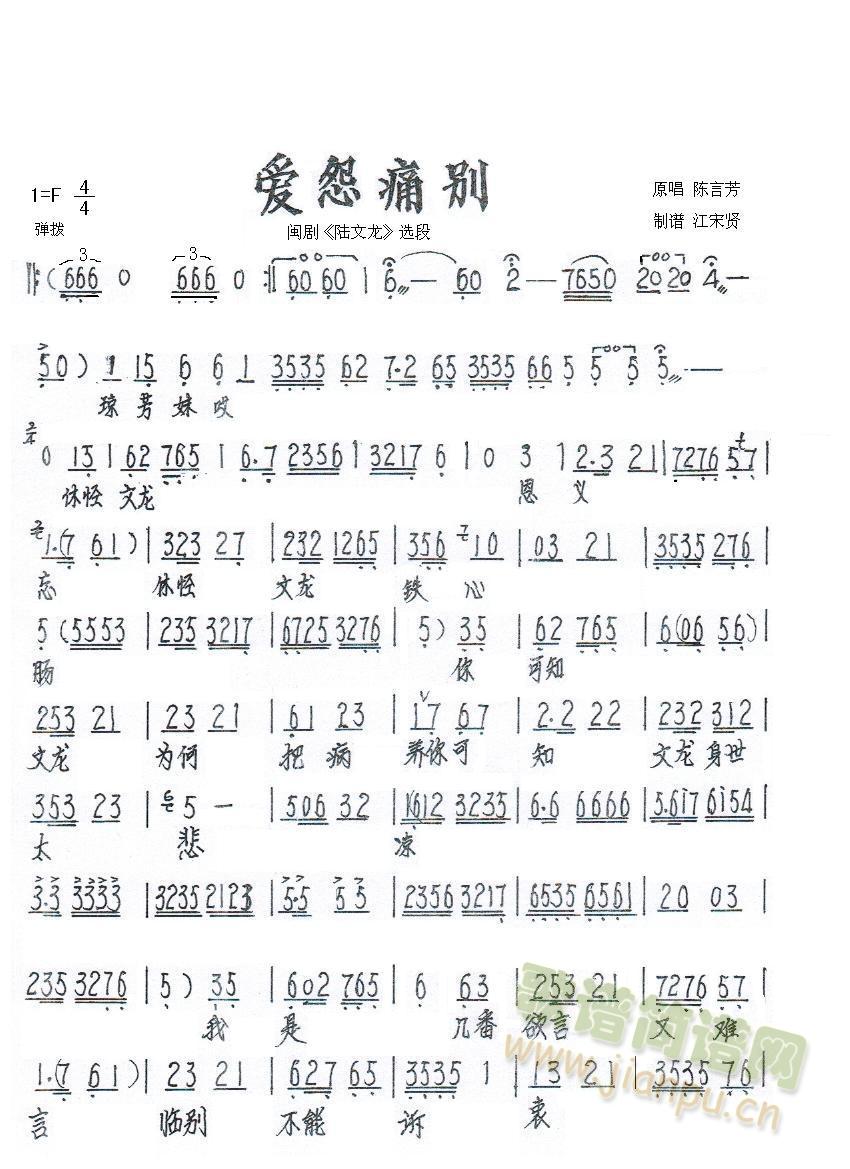 爱怨痛别
1=F 4/4
原唱 陈言芳
弹拨
闽剧《陆文龙》选段
制谱 江宋贤
‖:(666 0 666 0 :‖ 6060 | 6 — 60 2 — — 7650 2020 4 —
50) 1 15 6 6 1 3535 62 7·2 65 3535 66 5 5 5 5 —
琼 芳 妹 哎
2/4 0 13 | 62 765 | 6·7 2356 | 3217 6 | 0 3 | 2·3 21 | 7276 57 |
休怪 文龙 恩 义
1·(7 61) | 323 27 | 232 1265 | 356 10 | 03 21 | 3535 276 |
忘 休怪 文龙 铁 心
5 (5553 | 235 3217 | 6725 3276 | 5) 35 | 62 765 | 6(06 56) |
肠 你 可知
253 21 | 23 21 | 61 23 | 17 67 | 2·2 22 | 232 312 |
文龙 为何 把 病 养你可 知 文龙身世
353 23 | 5 — | 506 32 | 1612 3235 | 6·6 6666 | 5·617 6154 |
太 悲 凉
3·3 3333 | 3235 2123 | 5·5 55 | 2356 3217 | 6535 6561 | 20 03 |
235 3276 | 5) 35 | 602 765 | 6 63 | 253 21 | 7276 57 |
我 是 几番 欲言 又 难
1·(7 61) | 23 21 | 627 65 | 3535 1 | 13 21 | 3535 76 |
言 临别 不能 诉 衷
歌谱简谱网
www.jianpu.cn